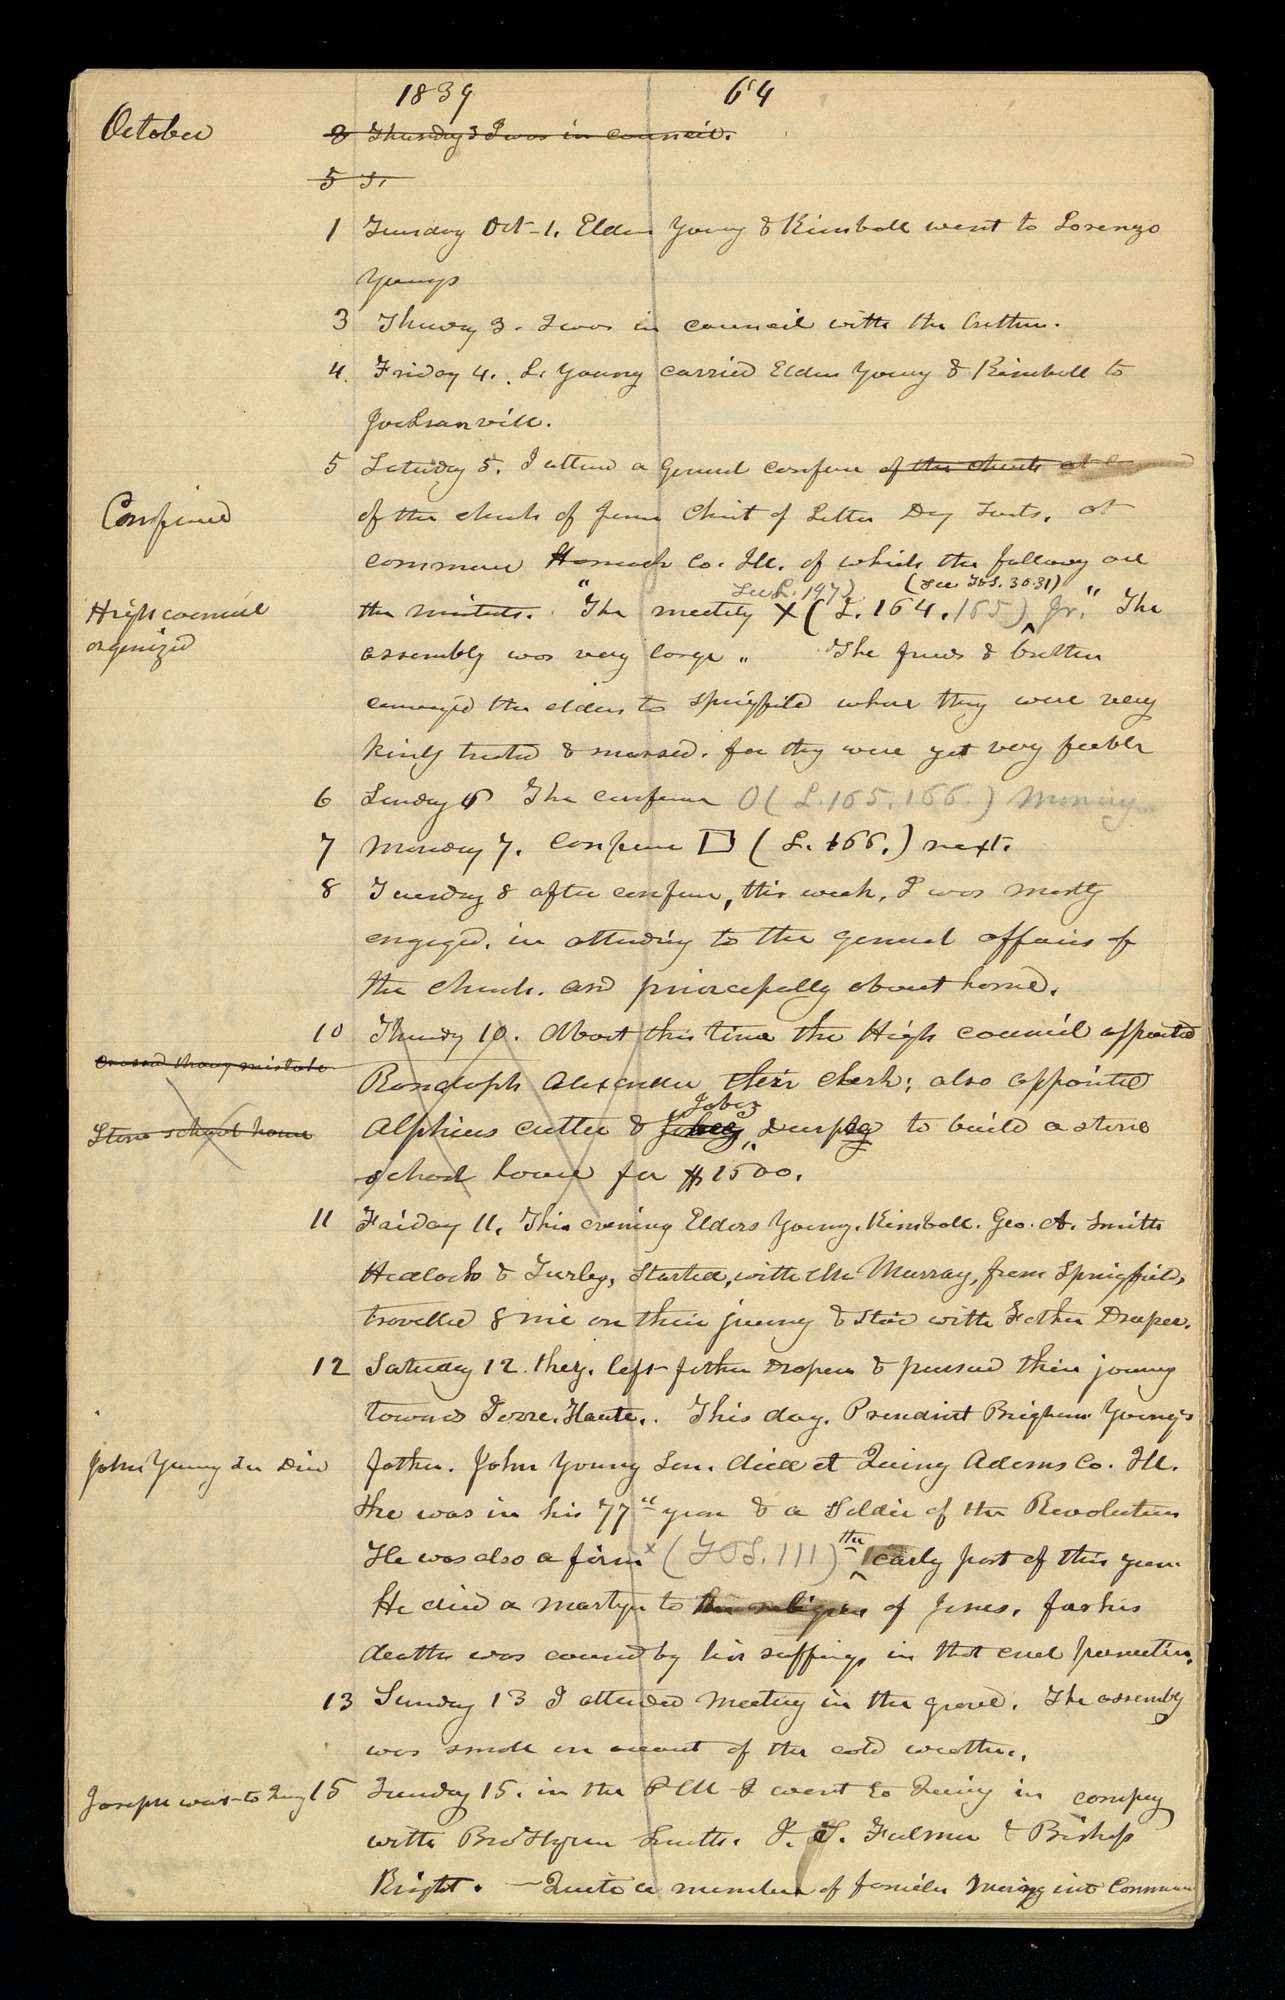 1839 64
October
3 Thursday 3 I was in council.
5 S.
1 Tuesday Oct-1. Elder Young & Kimball went to Lorenzo
Youngs
3 Thursday 3. I was in council with the brethren.
4. Friday 4. L. Young carried Elders Young & Kimball to
Jacksonvill.
5 Saturday 5. I attend a general confere of the church at
Conferenc
of the church of Jesus Christ of Latter Day Saints, at
commerce Hancock Co. Ill. of which the following are
See L. 197) (see TBS. 30.31)
High council
orgenized
the minutes. "The meeting X (L. 164.165) Jr." The
assembly was very large " The friends & brethren
conveyed the elders to Springfield where they were very
kindly treated & nursed. for they were yet very feeble
6 Sunday 6 The conference O (L. 165. 166.) Morning.
7 Monday 7. Conference □ (L. 166.) next.
8 Tuesday 8 after conference, this week, I was mostly
engaged. in attending to the general affairs of
the church. and princepally about home.
10 Thursday 10. About this time the High council appointed
crossed through mistake
Randolph Alexander their clerk; also appointed
Jabez
Stone school house
Alpheus Cutler & Jabez Durphy to build a stone
school house for $ 1500.
11 Friday 11. This evening Elders Young. Kimball. Geo. A. Smith
Hedlock & Turley, Started, with Mr Murray, from Springfield,
travelled 8 mi on their journey & staid with Father Draper.
12 Saturday 12. they. left father Drapers & pursued their journey
towards Terre. Haute. . This day. President Brigham Young's
John Young Sen Died
father. John Young Sen. died at Quincy Adams Co. Ill.
He was in his 77th year & a Soldier of the Revolution
the
He was also a firm x (TBS. 111) early part of this year.
He died a martyr to the religion of Jesus, for his
death was caused by his suffering in that cruel persecution.
13 Sunday 13 I attended meeting in the grove. The assembly
was small on account of the cold weather.
Joseph went to Quincy 15 Tuesday 15. in the P M I went to Quincy in company
with Bro Hyrum Smith. J. S. Fulmer & Bishop
Knight. — Quite a number of families moving into Commerce